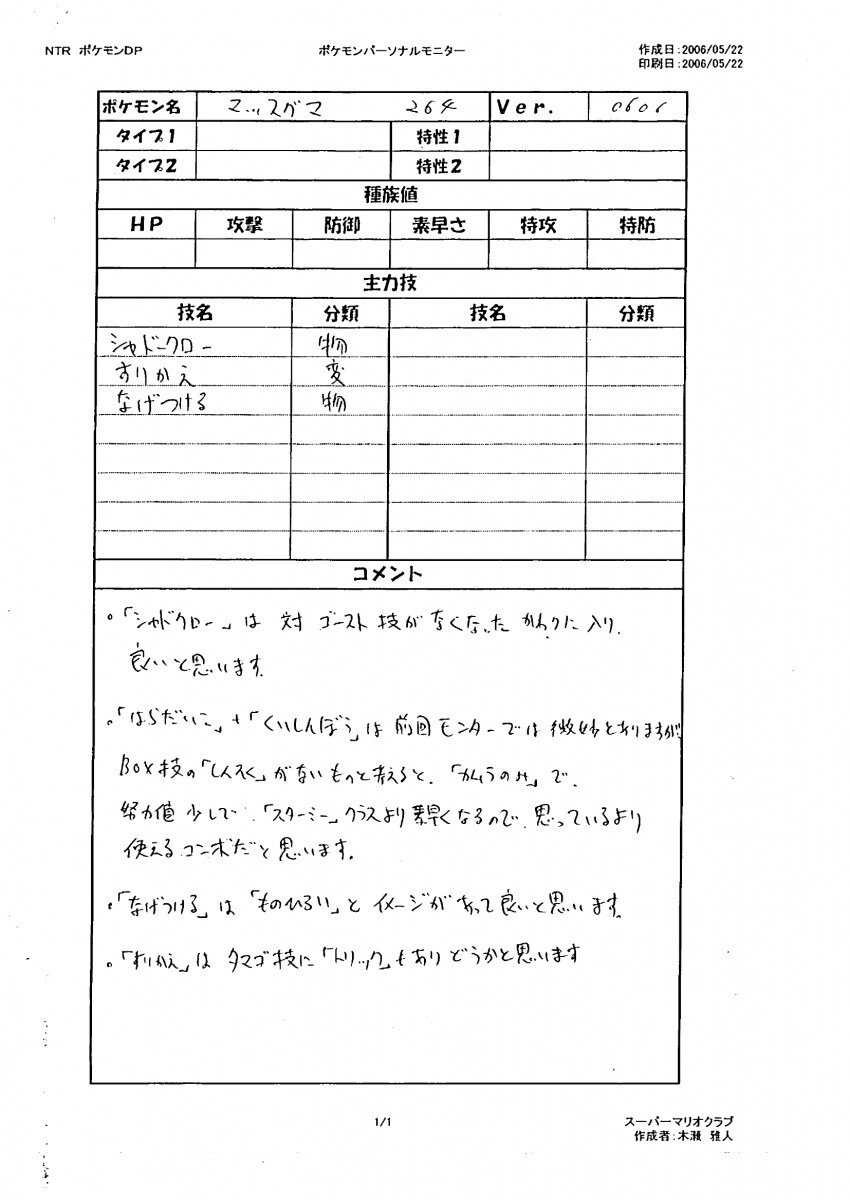 NTR ポケモンDP
ポケモンパーソナルモニター
作成日:2006/05/22
印刷日:2006/05/22
ポケモン名 マッスグマ 264 Ver. 0606
タイプ1 特性1
タイプ2 特性2
種族値
HP 攻撃 防御 素早さ 特攻 特防
主力技
技名 分類 技名 分類
シャドークロー 物
すりかえ 変
なげつける 物
コメント
。「シャドクロー」は 対 ゴースト 技が なくなった かわりに 入り、
良いと思います。
。「はらだいこ」+「くいしんぼう」は 前回モニターでは 微妙とありますが
BOX技の「しんそく」がないものと考えると、「カムラのみ」で、
努力値 少しで、「スターミー」クラスより素早くなるので、思っているより
使えるコンボだと思います。
。「なげつける」は「ものひろい」と イメージがあって良いと思います。
。「すりかえ」は タマゴ技に「トリック」もあり どうかと思います
1/1
スーパーマリオクラブ
作成者:木瀬 雅人